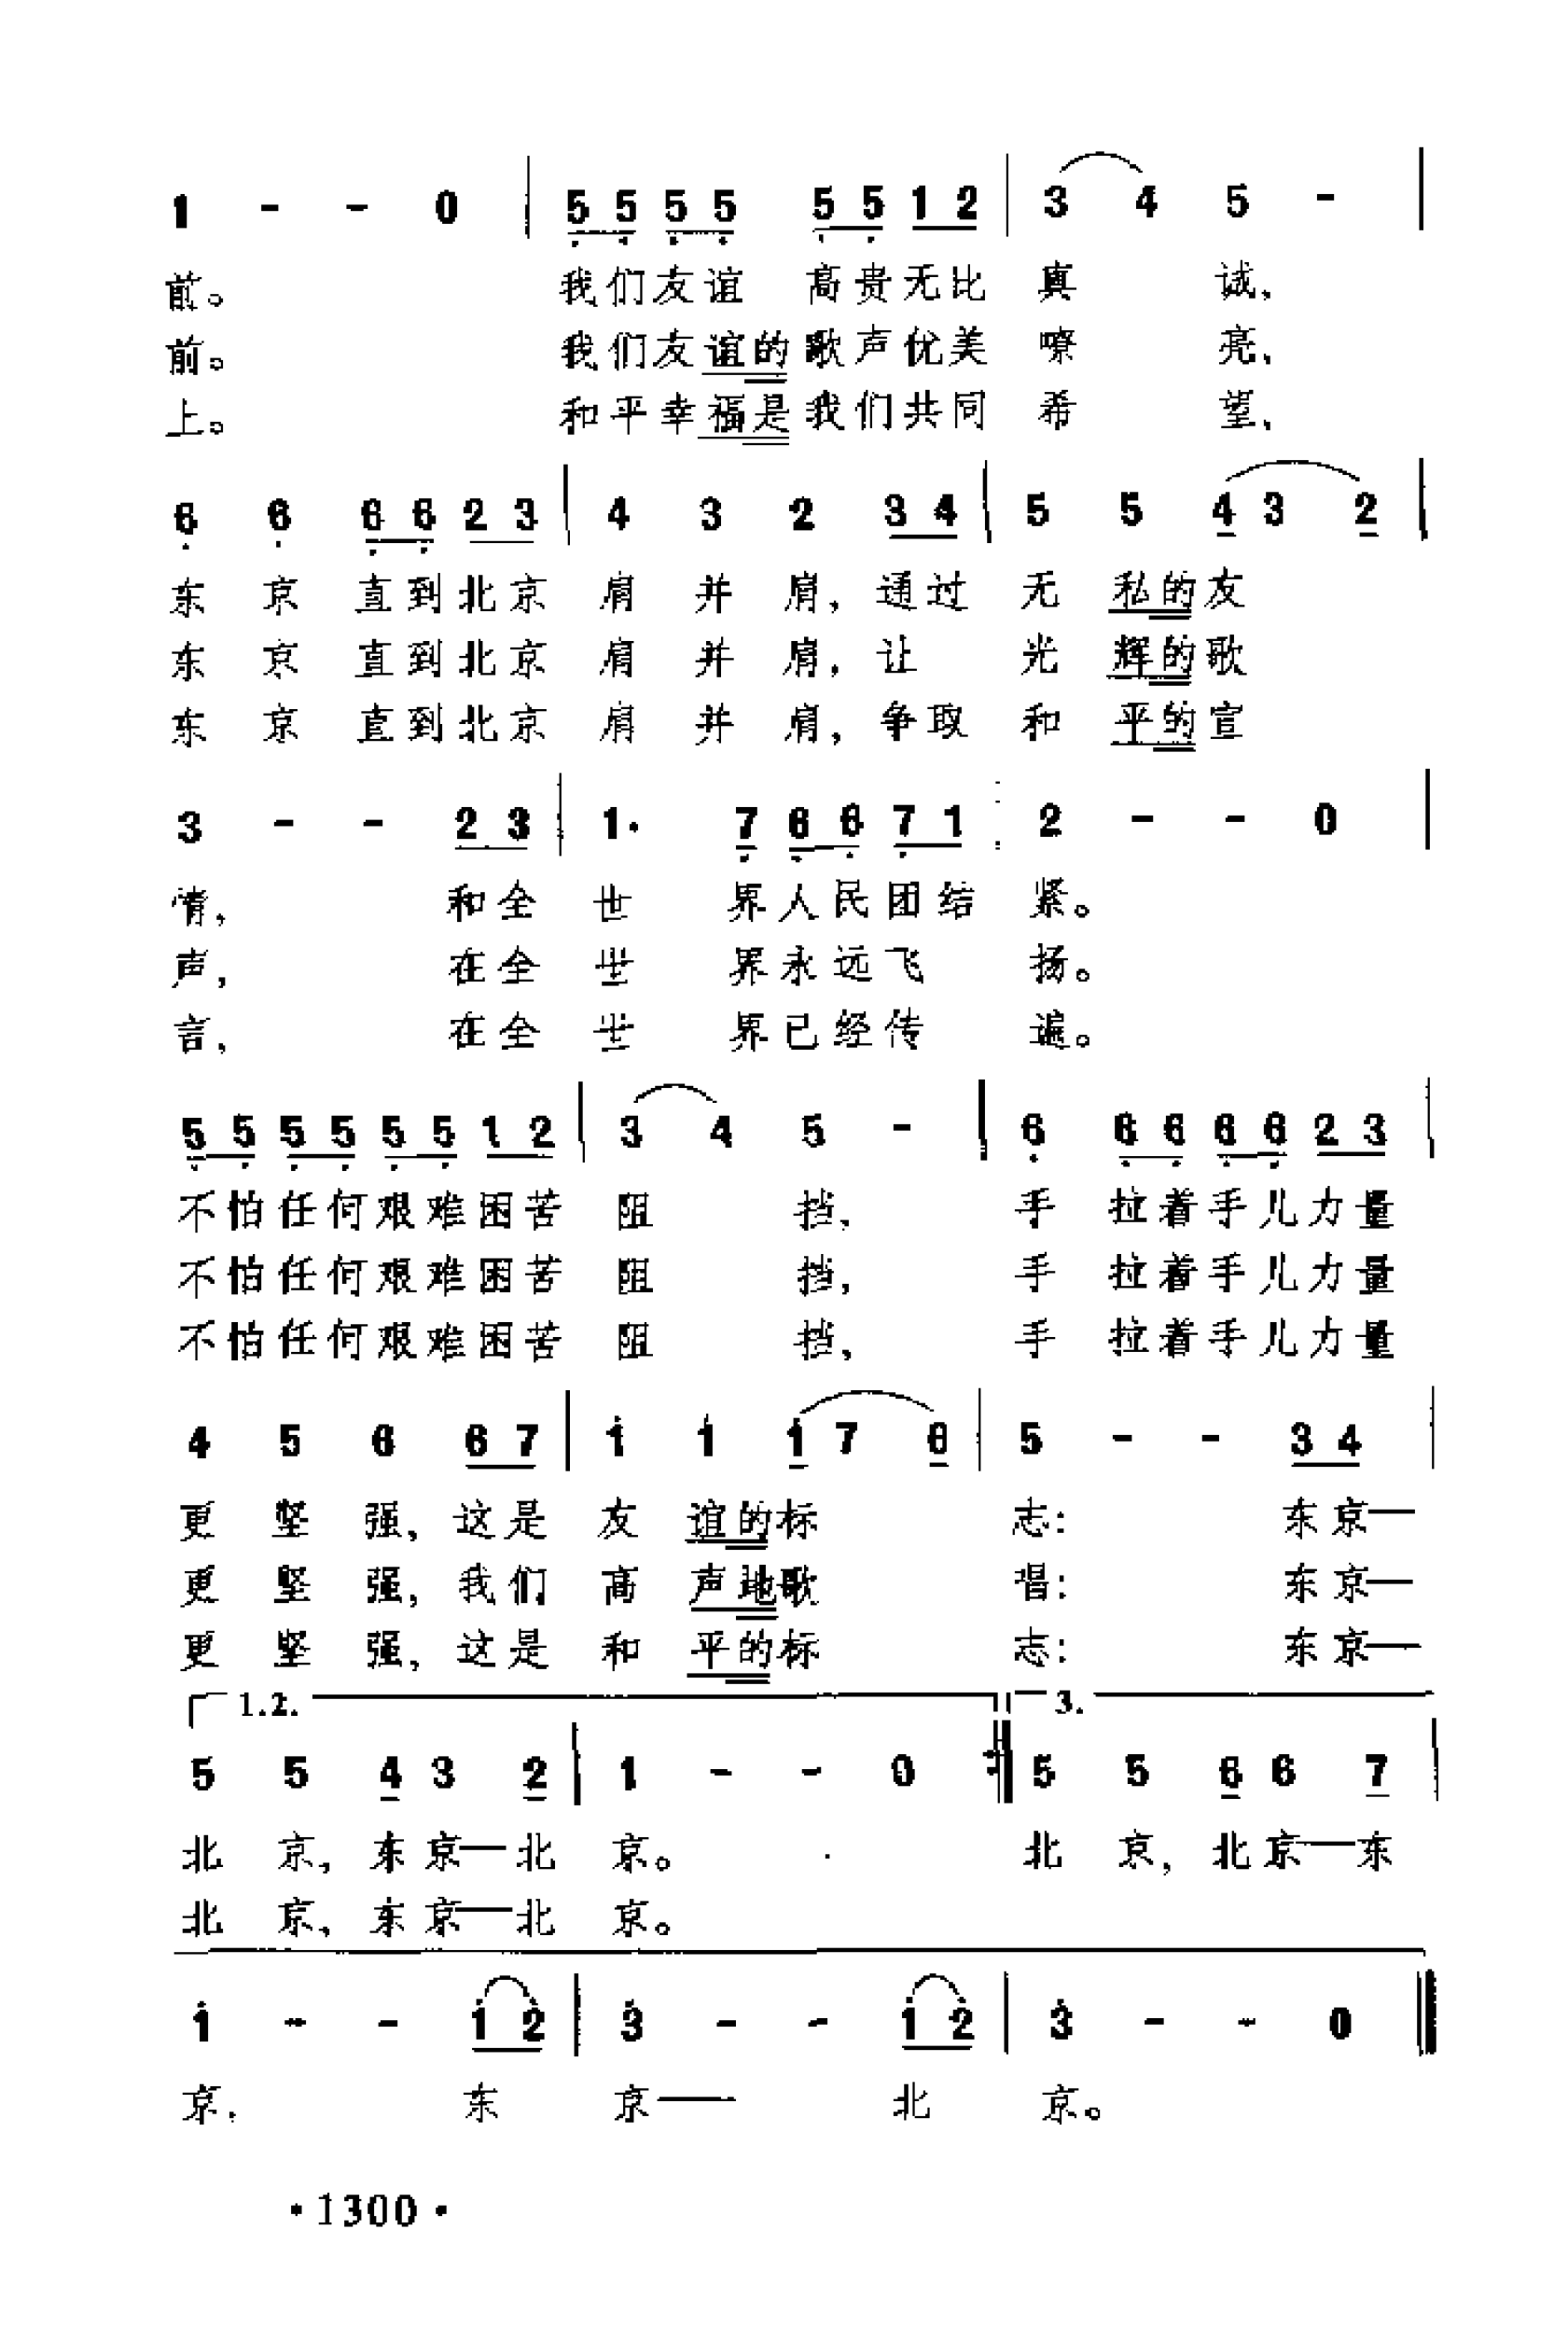 1 - - 0 | 5 5 5 5 5 5 1 2 | 3 4 5 - |
前。 我们友谊 高贵无比 真 诚,
前。 我们友谊的歌声优美 嘹 亮,
上。 和平幸福是我们共同 希 望,
6 6 6 6 2 3 | 4 3 2 3 4 | 5 5 4 3 2 |
东 京 直到北京 肩 并 肩, 通过 无 私的友
东 京 直到北京 肩 并 肩, 让 光 辉的歌
东 京 直到北京 肩 并 肩, 争取 和 平的宣
3 - - 2 3 | 1. 7 6 6 7 1 | 2 - - 0 |
情, 和全 世 界人民团结 紧。
声, 在全 世 界永远飞 扬。
言, 在全 世 界已经传 遍。
5 5 5 5 5 5 1 2 | 3 4 5 - | 6 6 6 6 6 2 3 |
不怕任何艰难困苦 阻 挡, 手 拉着手儿力量
不怕任何艰难困苦 阻 挡, 手 拉着手儿力量
不怕任何艰难困苦 阻 挡, 手 拉着手儿力量
4 5 6 6 7 | 1 1 1 7 6 | 5 - - 3 4 |
更 坚 强, 这是 友 谊的标 志: 东京—
更 坚 强, 我们 高 声地歌 唱: 东京—
更 坚 强, 这是 和 平的标 志: 东京—
1.2. 3.
5 5 4 3 2 | 1 - - 0 :‖ 5 5 6 6 7 |
北 京, 东京—北 京。 北 京, 北京—东
北 京, 东京—北 京。
1 - - 1 2 | 3 - - 1 2 | 3 - - 0 ‖
京, 东 京— 北 京。
·1300·